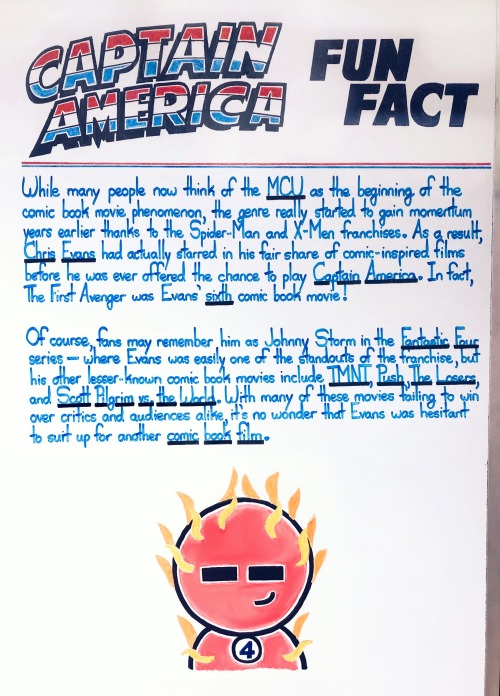 CAPTAIN AMERICA
FUN FACT
While many people now think of the MCU as the beginning of the
comic book movie phenomenon, the genre really started to gain momentum
years earlier thanks to the Spider-Man and X-Men franchises. As a result,
Chris Evans had actually starred in his fair share of comic-inspired films
before he was ever offered the chance to play Captain America. In fact,
The First Avenger was Evans' sixth comic book movie!
Of course, fans may remember him as Johnny Storm in the Fantastic Four
series — where Evans was easily one of the standouts of the franchise, but
his other lesser-known comic book movies include TMNT, Push, The Losers,
and Scott Pilgrim vs. the World. With many of these movies failing to win
over critics and audiences alike, it's no wonder that Evans was hesitant
to suit up for another comic book film.
4